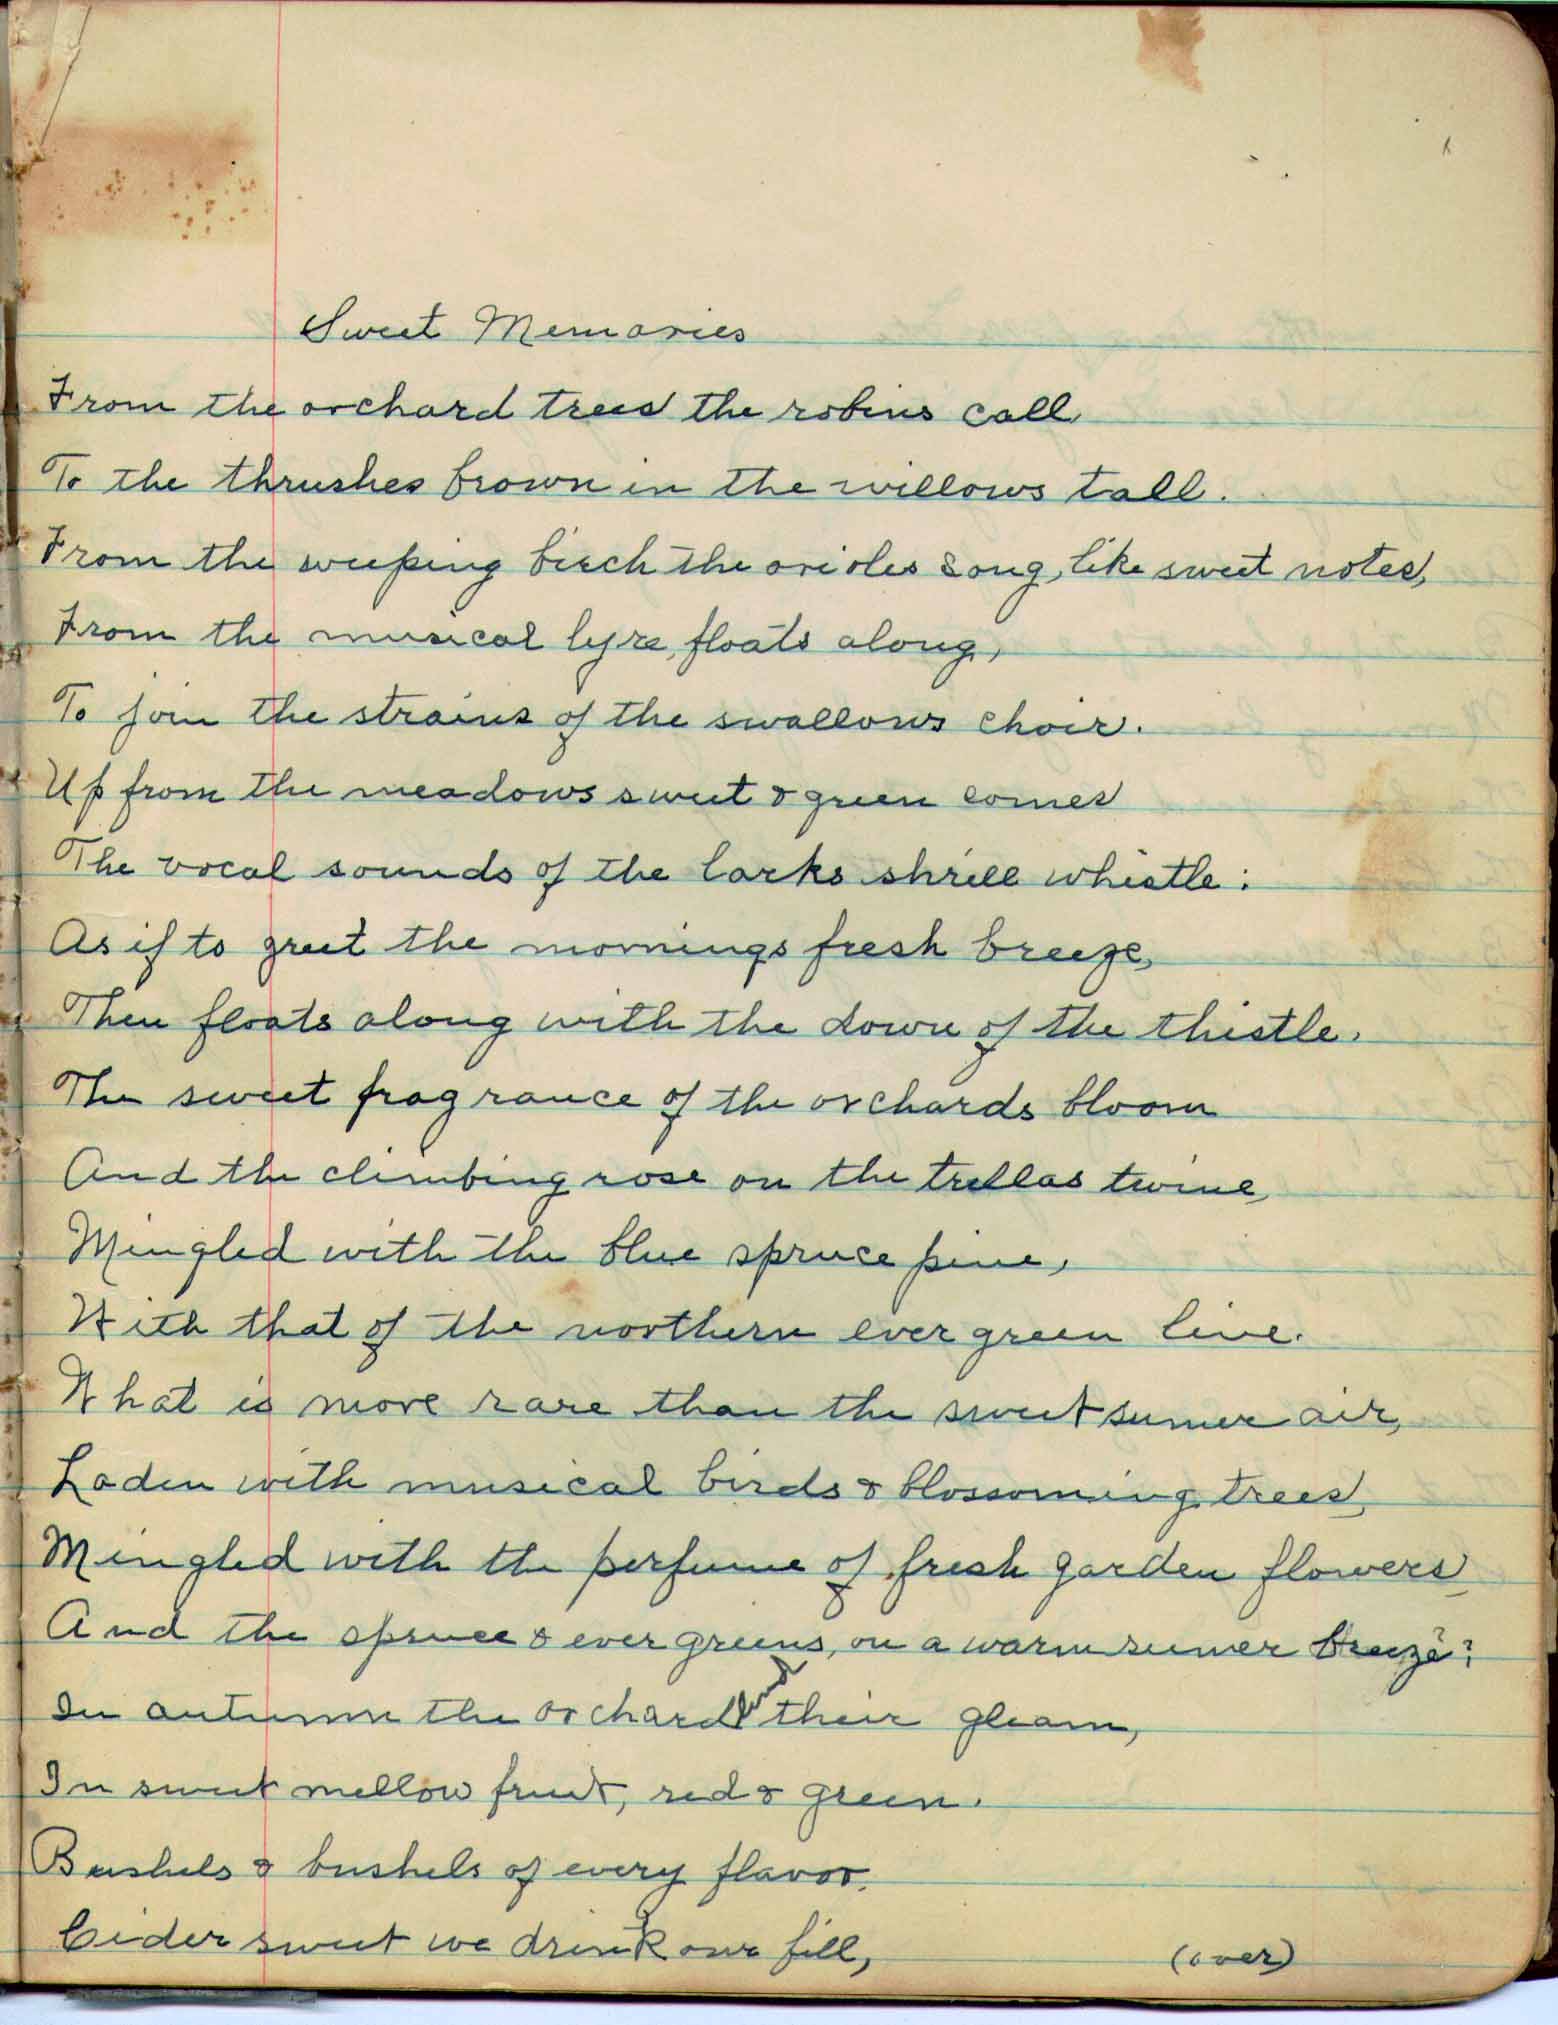 Sweet Memories
From the orchard trees the robins call
To the thrushes brown in the willows tall.
From the weeping birch the orioles song, like sweet notes,
From the musical lyre, floats along,
To join the strains of the swallows choir.
Up from the meadows sweet & green comes
The vocal sounds of the larks shrill whistle:
As if to greet the mornings fresh breeze,
Then floats along with the down of the thistle.
The sweet fragrance of the orchards bloom
And the climbing rose on the trellas twine,
Mingled with the blue spruce pine,
With that of the northern ever green line.
What is more rare than the sweet sumer air,
Laden with musical birds & blossoming trees,
Mingled with the perfume of fresh garden flowers
And the spruce & ever greens, on a warm sumer breeze?
In autumn the orchard their gleam,
In sweet mellow fruit, red & green.
Bushels & bushels of every flavor.
Cider sweet we drink our fill,
(over)